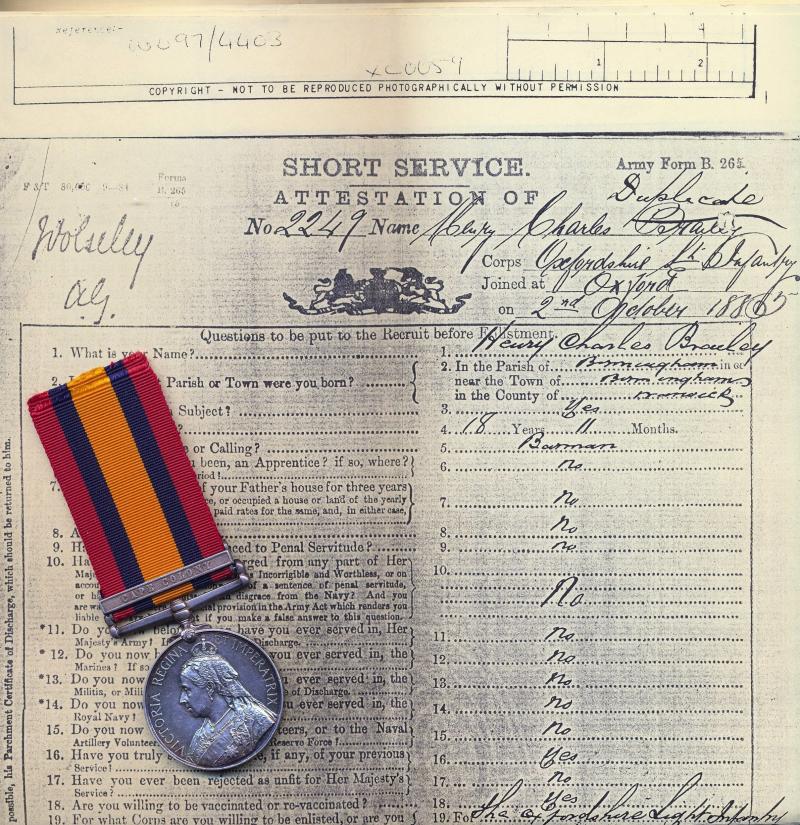 Reference:-
WO97/4403
XC0059
1 2
COPYRIGHT - NOT TO BE REPRODUCED PHOTOGRAPHICALLY WITHOUT PERMISSION
SHORT SERVICE.
Army Form B. 265.
Forms
B. 265
ATTESTATION OF
Duplicate
No 2249 Name Henry Charles
Wolseley
A.G.
Corps Oxfordshire Lt Infantry
Joined at Oxford
on 2nd October 188
Questions to be put to the Recruit before Enlistment.
1. What is your Name?
1. Henry Charles
2. Parish or Town were you born?
2. In the Parish of Birmingham in or
near the Town of Birmingham
in the County of Warwick
Subject?
3. Yes
4. 18 Years 11 Months.
or Calling?
5. Barman
been, an Apprentice? if so, where?
6. no
7. of your Father's house for three years
ce, or occupied a house or land of the yearly
paid rates for the same, and, in either case,
7. no
8. A
8. no
9. Ha ced to Penal Servitude?
9. no
10. Ha rged from any part of Her
Maje s Incorrigible and Worthless, or on
accou of a sentence of penal servitude,
or h disgrace from the Navy? And you
are wa al provision in the Army Act which renders you
liable if you make a false answer to this question.
10. No
*11. Do you now belo have you ever served in, Her
Majesty's Army? I Discharge.
11. no
*12. Do you now ever served in, the
Marines? If so
12. no
*13. Do you now ever served in, the
Militia, or Mili of Discharge.
13. no
*14. Do you now ever served in, the
Royal Navy?
14. no
15. Do you now teers, or to the Naval
Artillery Volunteer Reserve Force?
15. no
16. Have you truly e, if any, of your previous
Service?
16. Yes
17. Have you ever been rejected as unfit for Her Majesty's
Service?
17. no
18. Are you willing to be vaccinated or re-vaccinated?
18. Yes
19. For what Corps are you willing to be enlisted, or are you
19. For The Oxfordshire Light Infantry
possible, his Parchment Certificate of Discharge, which should be returned to him.
CAPE COLONY
VICTORIA REGINA ET IMPERATRIX